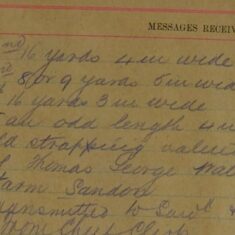 MESSAGES RECEIV
nd 16 yards 4 in wide
rd 8 or 9 yards 5 in wide
16 yards 3 in wide
an odd length 4 in
strapping value
Thomas George Wal
Farm Sandon
ansmitted to
from Chief Clerk